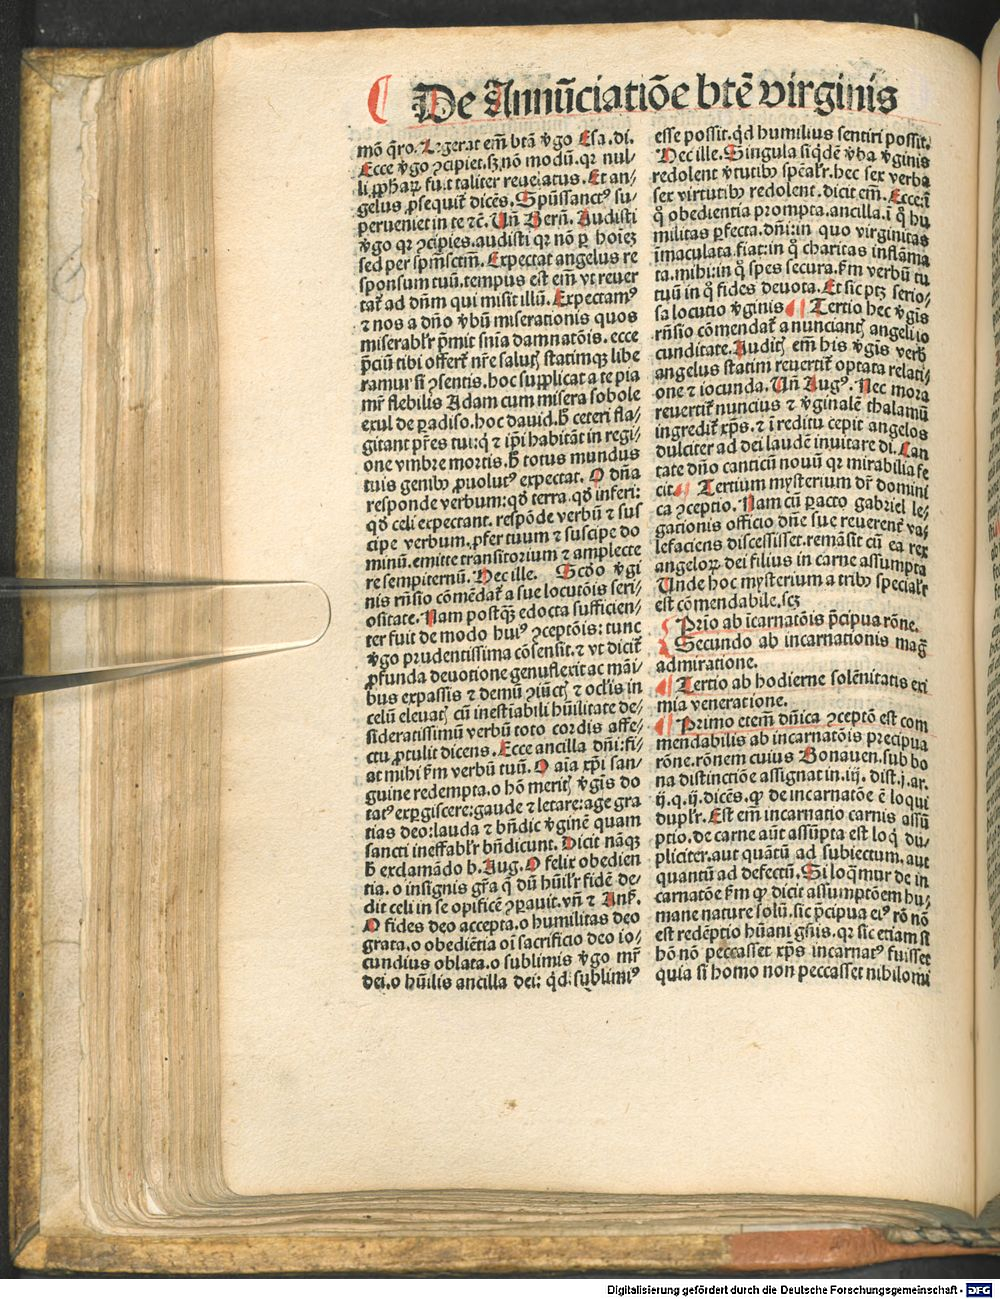 De Annūciatiōe btē virginis
mō q̄ro. Legerat em̄ btā v̓go Esa. di.
Ecce v̓go ꝯcipiet. sꝫ nō modū. qꝛ nul-
li ꝓphaꝝ fuit taliter reuelatus. Et an-
gelus ꝓsequit̄ dicēs. Spūssanctꝰ su-
perueniet in te ⁊c̄. Uñ Bern. Audisti
v̓go qꝛ ꝯcipies. audisti qꝛ nō ꝑ hoīeꝫ
sed per spm̄sctm̄. Expectat angelus re
sponsum tuū. tempus est em̄ vt reuer
tat̄ ad dn̄m qui misit illū. Expectamꝰ
⁊ nos a dn̄o v̓bū miserationis quos
miserabl'r p̄mit sn̄ia damnatōis. ecce
p̄ciū tibi offert̄ nr̄e saluꝭ statimqꝫ libe
ramur si ꝯsentis. hoc supplicat a te pia
mr̄ flebilis Adam cum misera sobole
exul de ꝑadiso. hoc dauid. h̄ ceteri fla-
gitant pr̄es tui: q̄ ⁊ ip̄i habitāt in regi-
one vmbre mortis. h̄ totus mundus
tuis genibꝰ ꝓuolutꝰ expectat. O dn̄a
responde verbum: qḋ terra. qḋ inferi:
qḋ celi expectant. respōde verbū ⁊ sus
cipe verbum. ꝓfer tuum ⁊ suscipe do
minū. emitte transitorium ⁊ amplecte
re sempiternū. Hec ille. Scḋo v̓gi
nis rn̄sio cōmēdat̄ a sue locutōis seri-
ositate. Nam postqꝫ edocta sufficien-
ter fuit de modo huiꝰ ꝯceptōis: tunc
v̓go prudentissima cōsensit. ⁊ vt dicit̄
ꝓfunda deuotione genuflexit ac māi-
bus expassis ⁊ demū ꝯiūcꝭ ⁊ ocl'is in
celū eleuaꝭ cū inestiabili hūilitate de-
sideratissimū verbū toto cordis affe-
ctu ꝓtulit dicens. Ecce ancilla dn̄i: fi-
at mihi ẜm verbū tuū. O aīa xp̄i san-
guine redempta. o hō meriꝭ v̓gīs do
tatꝰ expgiscere: gaude ⁊ letare: age gra
tias deo: lauda ⁊ bn̄dic v̓ginē quam
sancti ineffabl'r bn̄dicunt. Dicit nāqꝫ
h̄ exclamādo b. Aug. O felix obedien
tia. o insignis gr̄a q̄ dū hūil'r fidē de-
dit celi in se opificē ꝯpauit. vn̄ ⁊ Anẜ.
O fides deo accepta. o humilitas deo
grata. o obediētia oī sacrificio deo io-
cundius oblata. o sublimis v̓go mr̄
dei. o hūilis ancilla dei: qḋ sublimiꝰ
esse possit. qḋ humilius sentiri possit.
Hec ille. Singula siqḋē v̓ba v̓ginis
redolent v̓tutibꝰ spēal'r. hec sex verba
sex virtutibꝰ redolent. dicit em̄. Ecce: ī
q̊ obedientia prompta. ancilla. ī q̊ hu
militas ꝑfecta. dn̄i: in quo virginitas
immaculata. fiat: in q̊ charitas inflāma
ta. mihi: in q̊ spes secura. ẜm verbū tu
tuū in q̊ fides deuota. Et sic ptꝫ serio-
sa locutio v̓ginis ¶ Tertio hec v̓gīs
rn̄sio cōmendat̄ a nunciantꝭ angeli io
cunditate. Auditꝭ em̄ his v̓gīs verbꝭ
angelus statim reuertit̄ optata relati-
one ⁊ iocunda. Uñ Augꝰ. Nec mora
reuertit̄ nuncius ⁊ v̓ginalē thalamū
ingredit̄ xp̄s. ⁊ ī reditu cepit angelos
dulciter ad dei laudē inuitare di. Can
tate dn̄o canticū nouū qꝛ mirabilia fe
cit ¶ Tertium mysterium dr̄ domini
ca ꝯceptio. Nam cū ꝑacto gabriel le-
gationis officio dn̄e sue reuerent̄ va-
lefaciens discessisset. remāsit cū ea rex
angeloꝝ dei filius in carne assumpta
Unde hoc mysterium a tribꝰ special'r
est cōmendabile. scꝫ
Prīo ab īcarnatōis p̄cipua rōne.
Secundo ab incarnationis mag̅
admiratione.
¶ Tertio ab hodierne solēnitatis exi
mia veneratione.
¶ Primo etem̄ dn̄ica ꝯceptō est com
mendabilis ab incarnatōis precipua
rōne. rōnem cuius Bonauen. sub bo
na distinctiōe assignat in .iij. dist. j. ar.
ij. q. ij. dicēs. ꝙ de incarnatōe ē loqui
dupl'r. Est em̄ incarnatio carnis assū
ptio. de carne aūt assūpta est loq̇ du-
pliciter. aut quātū ad subiectum. aut
quantū ad defectū. Si loq̇mur de in
carnatōe ẜm ꝙ dicit assumptōem hu-
mane nature solū. sic p̄cipua eiꝰ rō nō
est redēptio hūani gn̄is. qꝛ sic etiam si
hō nō peccasset xp̄s incarnatꝰ fuisset
quia si homo non peccasset nihilomi
Digitalisierung gefördert durch die Deutsche Forschungsgemeinschaft - DFG